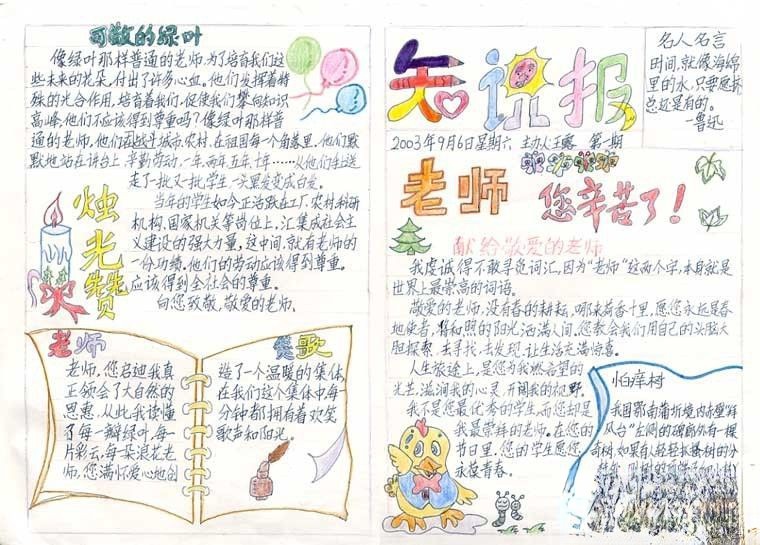 可敬的绿叶
像绿叶那样普通的老师,为了培育我们这
些未来的花朵,付出了许多心血。他们发挥着特
殊的光合作用,培育着我们,促使我们攀向知识
高峰,他们不应该得到尊重吗?像绿叶那样普
通的老师,他们在城市,农村,在祖国每一个角落里,他们默
默地站在讲台上,辛勤劳动,一年两年五年十年……从他们手上送
走了一批又一批学生,一头黑发变成白发。
当年的学生如今正活跃在工厂,农村,科研
机构、国家机关等岗位上,汇集成社会主
义建设的强大力量,这中间,就有老师的
一份功绩。他们的劳动应该得到尊重。
应该得到全社会的尊重。
向您致敬,敬爱的老师。
烛光赞
老师
老师,您启迪我真
正领会了大自然的
恩惠,从此我读懂
了每一瓣绿叶,每一
片彩云,每朵浪花老
师,您满怀爱心地创
赞歌
造了一个温暖的集体,
在我们这个集体中每一
分钟都拥有着欢笑
歌声和阳光。
知识报
名人名言
时间,就像海绵
里的水,只要愿挤
总还是有的。
——鲁迅
2003年9月6日星期六 主办人:王露 第一期
老师 您辛苦了!
献给敬爱的老师
我虔诚得不敢寻觅词汇,因为“老师”这两个字,本身就是
世界上最崇高的词语。
敬爱的老师,没有春的耕耘,哪来荷香十里,愿您永远是春
地使者,将和照的阳光洒满人间。您教会我们用自己的头脑大
胆探索,去寻找,去发现,让生活充满惊喜。
人生旅途上,是您为我燃起希望的
光芒,滋润我的心灵,开阔我的视野。
我不是您最优秀的学生,而您却是
我最崇拜的老师。在您的
节日里,您的学生愿您,
永葆青春。
怕痒树
我国鄂南蒲圻境内赤壁“拜
风台”左侧的碑廊外有一棵
奇树,如果有人轻轻扒搔树的分